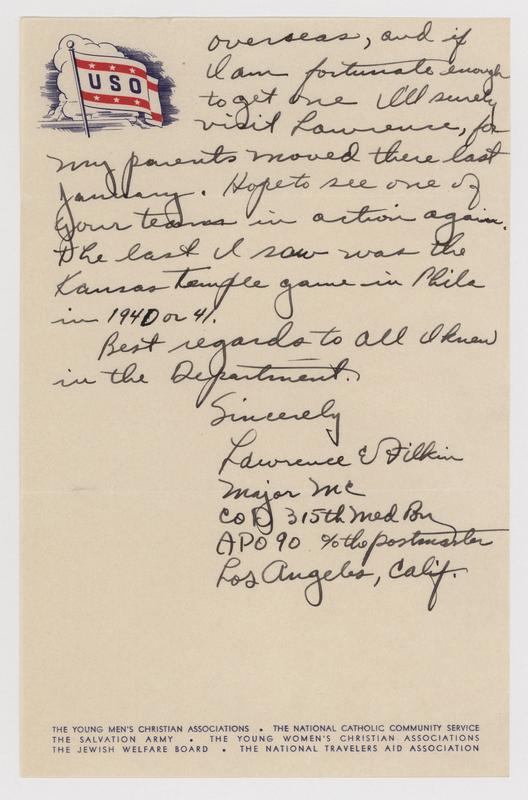 USO
overseas, and if
I am fortunate enough
to get one I'll surely
visit Lawrence, for
my parents moved there last
January. Hope to see one of
your teams in action again.
The last I saw was the
Kansas temple game in Phila
in 1940 or 41.
Best regards to all I knew
in the Department.
Sincerely
Lawrence E Filkin
Major MC
Co D 315th Med Bn
APO 90 % the postmaster
Los Angeles, Calif.
THE YOUNG MEN'S CHRISTIAN ASSOCIATIONS • THE NATIONAL CATHOLIC COMMUNITY SERVICE
THE SALVATION ARMY • THE YOUNG WOMEN'S CHRISTIAN ASSOCIATIONS
THE JEWISH WELFARE BOARD • THE NATIONAL TRAVELERS AID ASSOCIATION